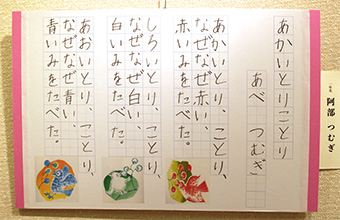 あかいとりことり
あべ　つむぎ
あかいとり、ことり、
なぜなぜ赤い、
赤いみをたべた。
しろいとり、ことり、
なぜなぜ白い、
白いみをたべた。
あおいとり、ことり、
なぜなぜ青い、
青いみをたべた。
阿部　つむぎ